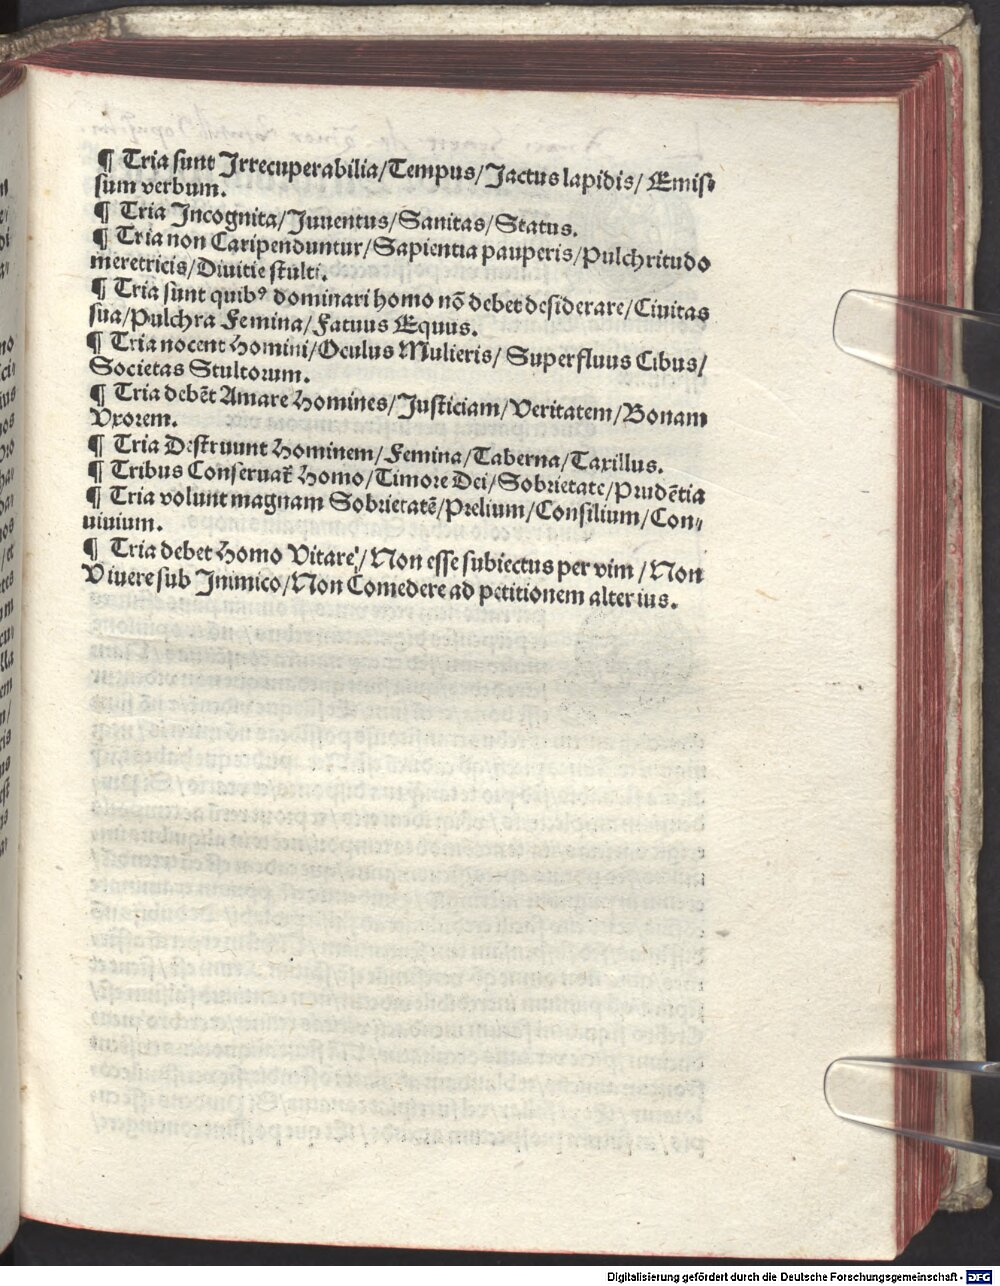 ¶ Tria sunt Irrecuperabilia/Tempus/Jactus lapidis/ Emis⸗
sum verbum.
¶ Tria Incognita/Juuentus/Sanitas/Status.
¶ Tria non Caripenduntur/Sapientia pauperis/Pulchritudo
meretricis/Diuitie stulti.
¶ Tria sunt quibꝰ dominari homo nō debet desiderare/Ciuitas
sua/Pulchra Femina/Fatuus Equus.
¶ Tria nocent Homini/Oculus Mulieris/ Superfluus Cibus/
Societas Stultorum.
¶ Tria debēt Amare Homines/Justiciam/Veritatem/Bonam
Vxorem.
¶ Tria Destruunt Hominem/Femina/Taberna/Taxillus.
¶ Tribus Conseruat̄ Homo/Timore Dei/Sobrietate/Prudētia
¶ Tria volunt magnam Sobrietatē/Prelium/Consilium/Con⸗
uiuium.
¶ Tria debet Homo Vitare/Non esse subiectus per vim/Non
Viuere sub Inimico/Non Comedere ad petitionem alterius.
Digitalisierung gefördert durch die Deutsche Forschungsgemeinschaft - DFG